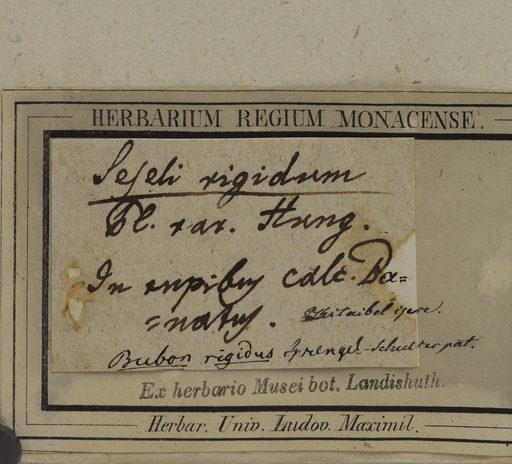 HERBARIUM REGIUM MONACENSE.
Seseli rigidum
Pl. rar. Hung.
In rupibus calc. Ba=
=natus. Kitaibel ipse.
Bubon rigidus Sprengel. Schultes pat.
Ex herbario Musei bot. Landishuth.
Herbar. Univ. Ludov. Maximil.